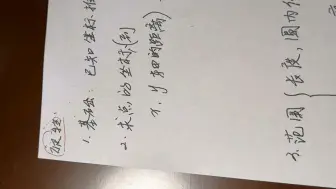 1. 基础：已知坐标
2. 求点的坐标(到
x, y 轴的距离)
3. 范围 { 长度, 圆内